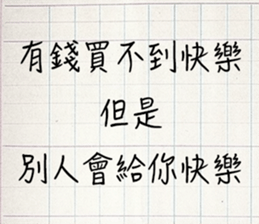 有錢買不到快樂
但是
別人會給你快樂